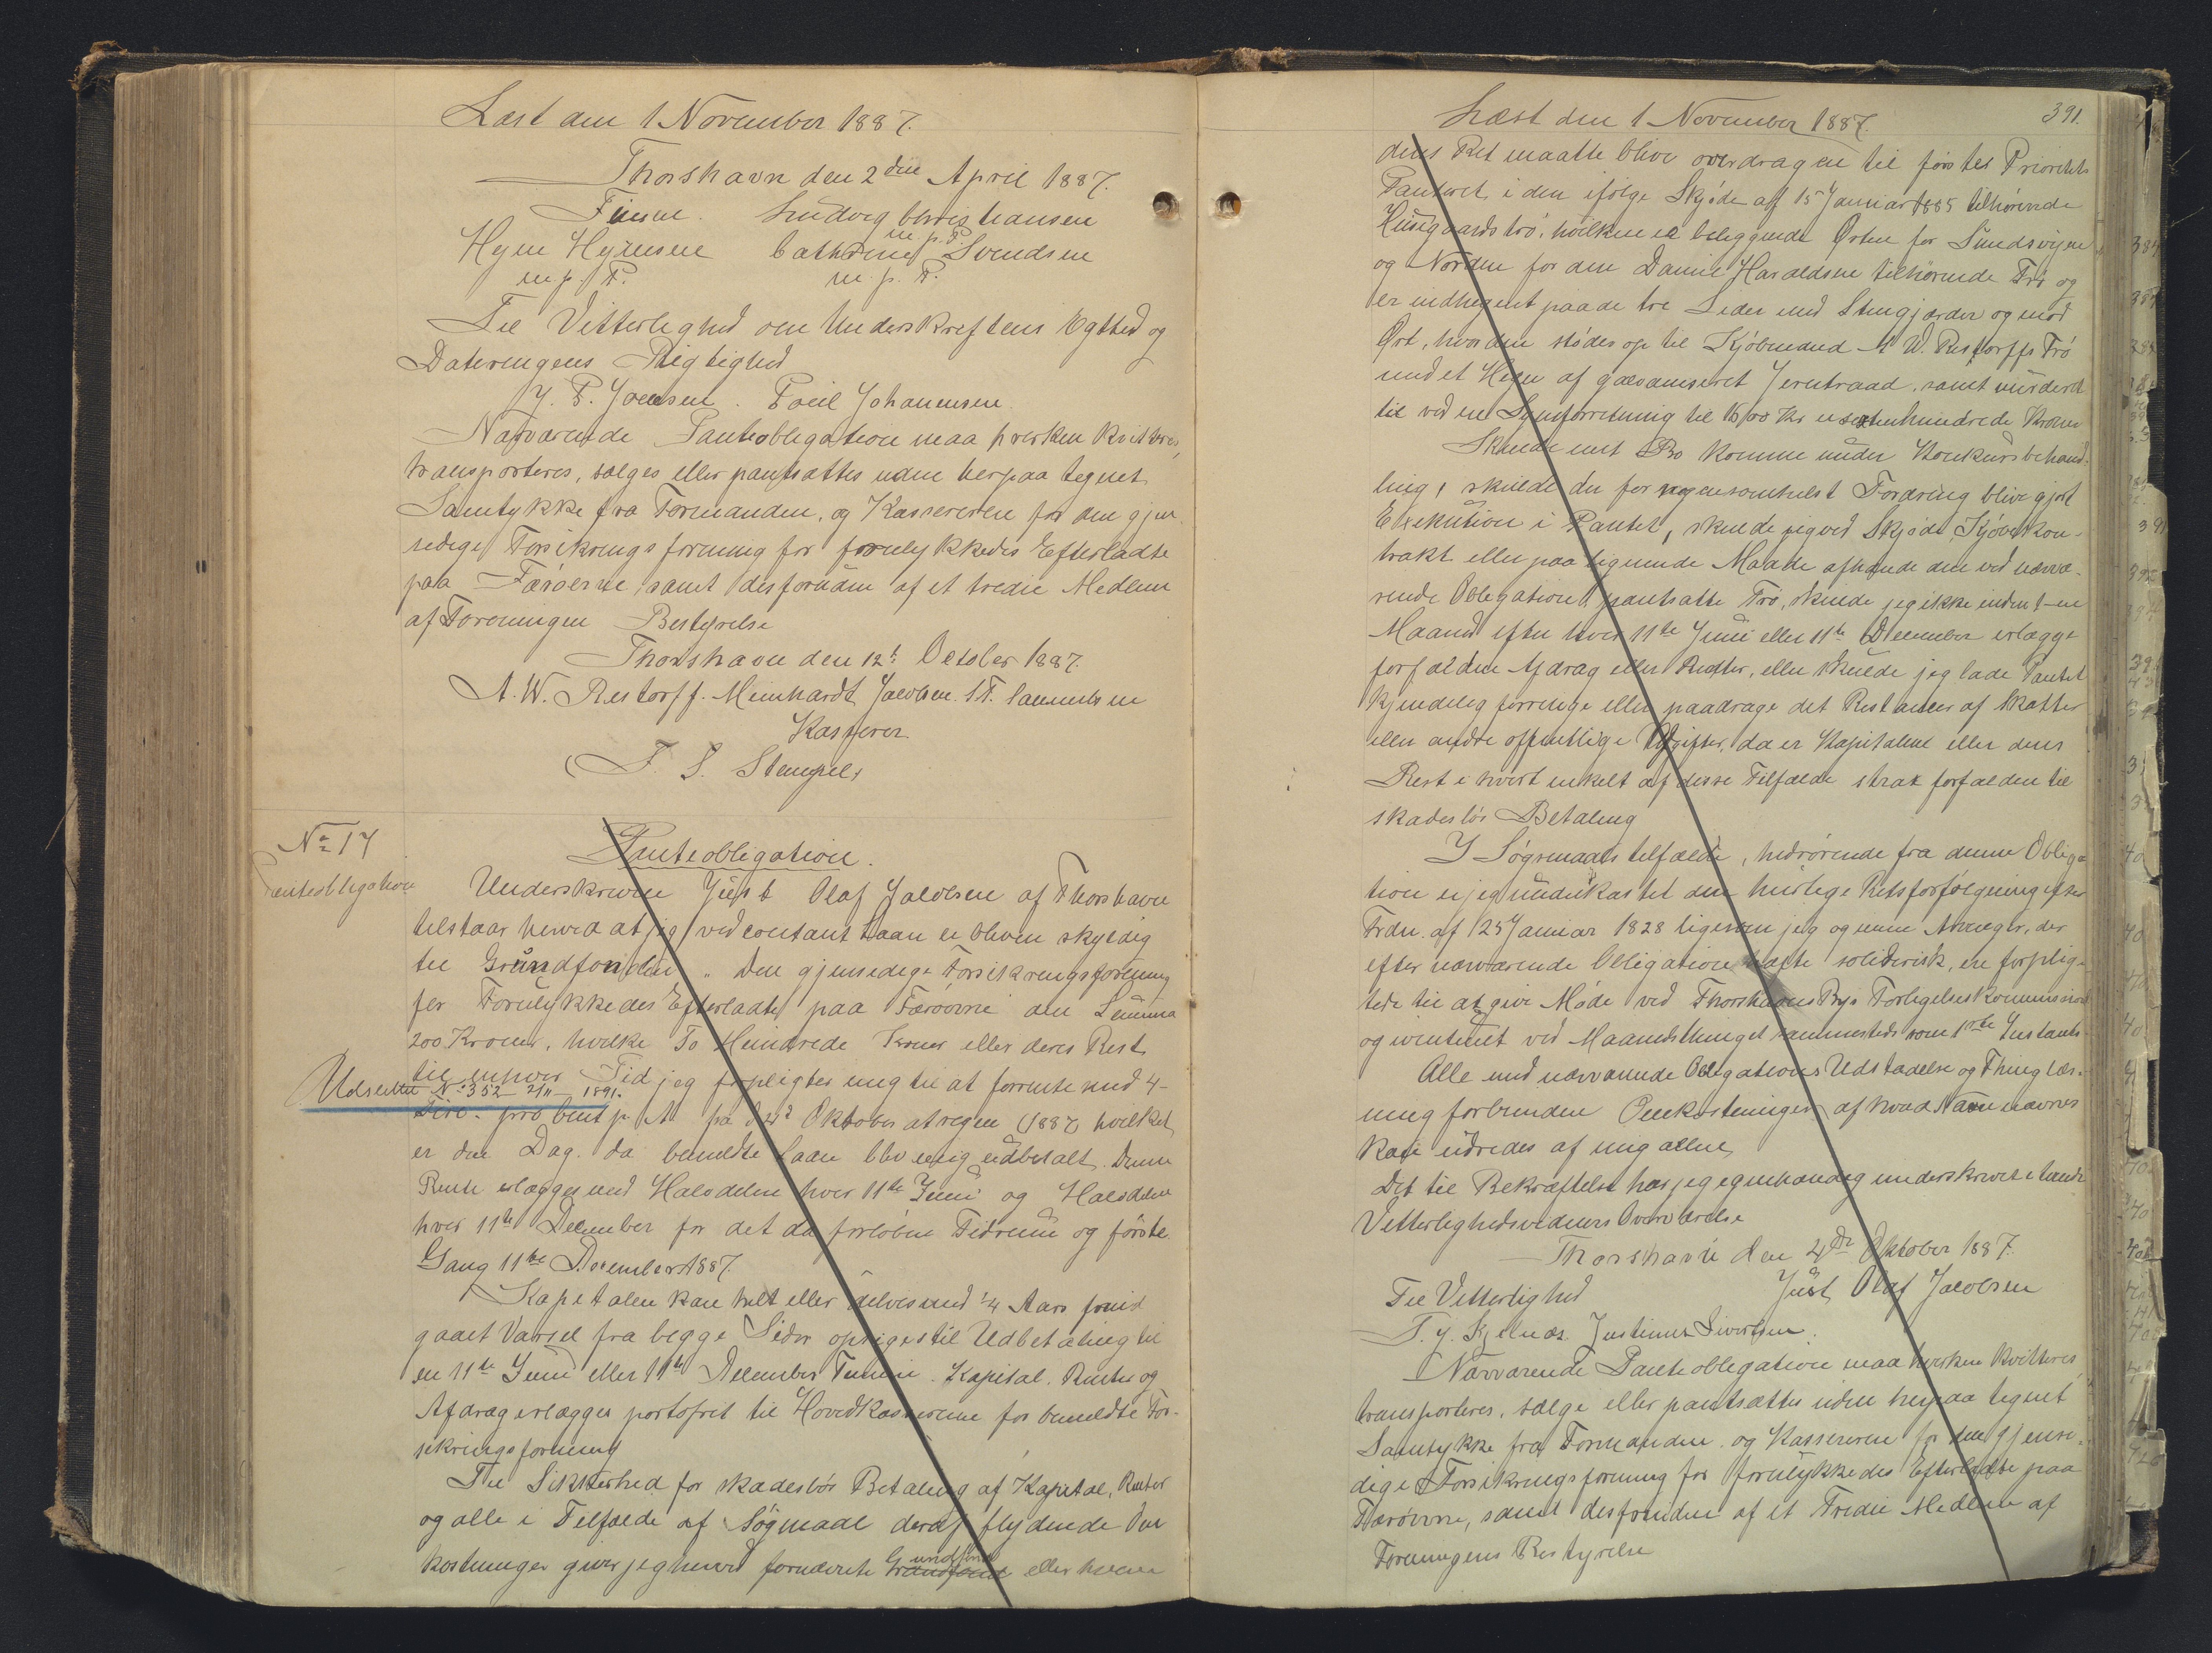 Læst den 1 November 1887.
Thorshavn den 2den April 1887.
Finsen. Ludvig Christiansen
m. p. P.
Hejne Hejnesen Cathrine Svendsen
m. p. P. m. p. P.
Til Vitterlighed om Underskriftens Ægthed og
Dateringens Rigtighed
J. P. Joensen. Poul Johannesen
Nærværende Panteobligation maa hverken kvitteres,
transporteres, sælges eller pantsættes uden herpaa tegnet
Samtykke fra Formanden, og Kassereren for den gjen
sedige Forsikringsforening for forulykkedes Efterladte
paa Færøerne, samt desforuden af et tredie Medlem
af Foreningen Bestyrelse
Thorshavn den 12t October 1887.
A. W. Restorff. Meinhardt Jacobsen.
Kasserer
(F. S. Stempel)
No 17
Panteobligation
Panteobligation.
Underskrevne Just Olaf Jacobsen af Thorshavn
tilstaar herved at jeg ved contant Laan er bleven skyldig
til Grundfonden " Den gjensedige Forsikringsforening
for Forulykkedes Efterladte paa Færøerne den Summa
200 Kroner, hvilke To Hundrede Kroner eller deres Rest
til enhver Tid jeg forpligter mig til at forrente med 4-
Udslettet No 352 - 21/11 - 1891.
Fire - pro Cent p. A fra d 4de Oktober at regne (1887) hvilket
er den Dag da bemeldte Laan blev mig udbetalt. Denne
Rente erlægges med Halvdelen hver 11te Juni og Halvdelen
hver 11te December for det da forløbne Tidrum og første
Gang 11te December 1887.
Kapitalen kan helt eller delvis med 1/4 Aars forud
gaaet Varsel fra begge Sider opsiges til Udbetaling til
en 11te Juni eller 11te December Termin. Kapital, Renter og
Afdrag erlægges portofrit til Hovedkassereren for bemeldte For-
sikringsforening
Til Sikkerhed for skadesløs Betaling af Kapital, Renter
og alle i Tilfælde af Søgmaal deraf flydende Om
kostninger giver jeg herved fornævnte Grundfond eller hvem
Læst den 1 November 1887. 391.
dens Ret maatte blive overdragen til første Prioritets
Panteret i den ifølge Skjøde af 15 Januar 1885 tilhørende
Husigaards trø, hvilken er beliggende Østen for Sundsvejen
og Norden for den Daniel Haraldsen tilhørende Trø og
er indhegnet paa de tre Sider med Stengjærder og mod
Øst, hvor den støder op til Kjøbmand M W. Restorffs Trø
med et Hegn af galvaniseret Jerntraad, samt vurderet
til ved en Synsforretning til 1600 Kr sextenhundrede Kroner
Skulde mit Bo komme under Konkursbehand-
ling, skulde der for nogensomhelst Fordring blive gjort
Exekution i Pantet, skulde jeg ved Skjøde, Kjøbekon-
trakt eller paa lignende Maade afhænde den ved nærvæ-
rende Obligation pantsatte Trø, skulde jeg ikke inden 1-en
Maaned efter hver 11te Juni eller 11te December erlægge
forfaldne Afdrag eller Renter, eller skulde jeg lade Pantet
kjendelig forringe eller paadrage det Restancer af Skatter
eller andre offentlige Afgifter, da er Kapitalen eller dens
Rest i hvert enkelt af disse Tilfælde strax forfalden til
skadesløs Betaling
I Søgsmaals tilfælde, hidrørende fra denne Obliga
tion er jeg underkastet den hurtige Retsforfølgning efter
Frdn. af 25 Januar 1828 ligesom jeg og mine Arvinger, der
efter nærværende Obligation hæfte solidarisk, er forplig-
tede til at give Møde ved Thorshavns Bys Forligelseskommission
og eventuelt ved Maanedsthinget sammesteds som 1ste Instants
Alle med nærværende Obligations Udstædelse og Thinglæs-
ning forbundne Omkostninger af hvad Navn nævnes
kan udredes af mig allene
Det til Bekræftelse har jeg egenhændig underskrevet i tvende
Vitterlighedsvidners Overværelse
Thorshavn den 4de Oktober 1887.
Til Vitterlighed Just Olaf Jacobsen
Justinus Sivertsen.
Nærværende Panteobligation maa hverken kvitteres,
transporteres, sælge eller pantsættes uden herpaa tegnet
Samtykke fra Formanden og Kassereren for den gjense-
dige Forsikringsforening for forulykkedes Efterladte paa
Færøerne, samt desforuden af et Tredie Medlem af
Foreningens Bestyrelse